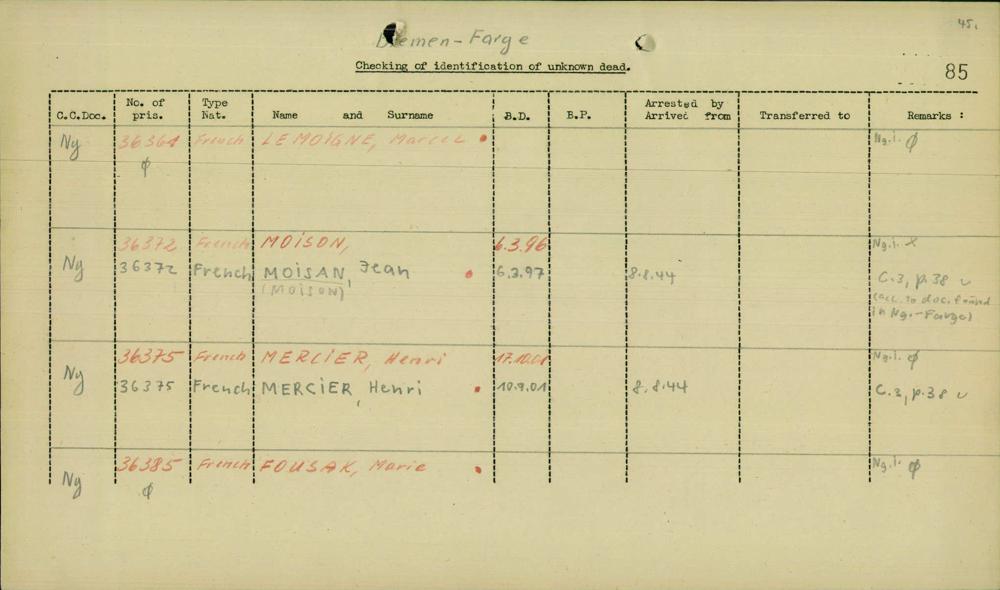 45.
Bremen-Farge
Checking of identification of unknown dead.
85
C.C.Doc. No. of pris. Type Nat. Name and Surname B.D. B.P. Arrested by Arrived from Transferred to Remarks :
Ny 36361 French LEMOIGNE, Marcel Ng.l. ø
ø
36372 French MOISON, 6.3.96 Ng.l. x
Ny 36372 French MOISAN, Jean 6.3.97 8.8.44 C.3, p.38 v
(MOISON) (acc. to doc. found
in Ng.-Farge)
36375 French MERCIER, Henri 17.10.01 Ng.l. ø
Ny 36375 French MERCIER, Henri 10.9.01 8.8.44 C.3, p.38 v
36385 French FOUSAK, Marie Ng.l. ø
Ny ø